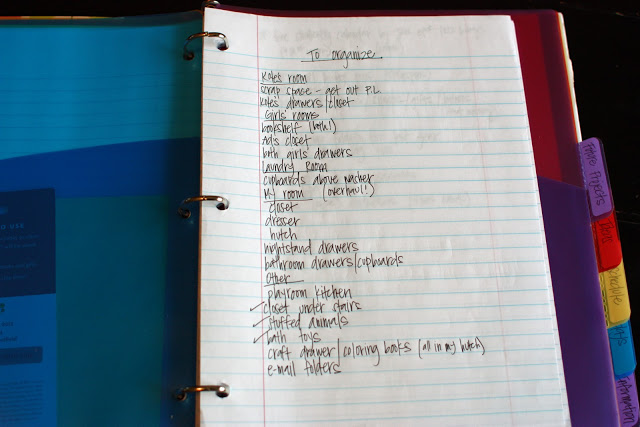 To organize
Kole's room
scrap space - get out P.L.
Kole's drawers/closet
Girls' rooms
bookshelf (both!)
Ad's closet
both girls drawers
Laundry Room
cupboards above washer
My room (overhaul!)
closet
dresser
hutch
nightstand drawers
bathroom drawers/cupboards
Other
playroom kitchen
✓ closet under stairs
✓ stuffed animals
✓ bath toys
craft drawer/coloring books (all in my hutch)
e-mail folders
Future Projects